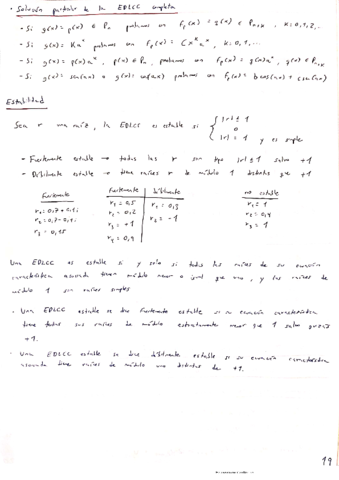 · Solución particular de la EDLCC completa
- Si g(x) = p(x) ∈ Pn probamos con fp(x) = q(x) ∈ Pn+k, k: 0,1,2,..
- Si g(x) = K a^x probamos con fp(x) = C x^k a^x, k: 0,1,...
- Si g(x) = p(x) a^x, p(x) ∈ Pn, probamos con fp(x) = q(x) a^x, q(x) ∈ Pn+k
- Si g(x) = sen(ax) o g(x) = cos(ax) probamos con fp(x) = b cos(ax) + c sen(ax)
Estabilidad
Sea r una raíz, la EDLCC es estable si { |r| ≤ 1
o
|r| = 1 y es simple
- Fuertemente estable → todas las r son tipo |r| ≤ 1 salvo +1
- Débilmente estable → tiene raíces r de módulo 1 distintas que +1
Fuertemente Fuertemente Débilmente no estable
r1 = 0,7 + 0,1i r1 = 0,5 r1 = 0,3 r1 = 1
r2 = 0,7 - 0,1i r2 = 0,2 r2 = -1 r2 = 0,4
r3 = 0,15 r3 = +1 r3 = 1
r4 = 0,4
Una EDLCC es estable si y solo si todas las raíces de su ecuación
característica asociada tienen módulo menor o igual que uno, y las raíces de
módulo 1 son raíces simples
- Una EDLCC estable se dice fuertemente estable si su ecuación característica
tiene todas sus raíces de módulo estrictamente menor que 1 salvo quizás
+1.
- Una EDLCC estable se dice débilmente estable si su ecuación característica
asociada tiene raíces de módulo uno distintas de +1.
19